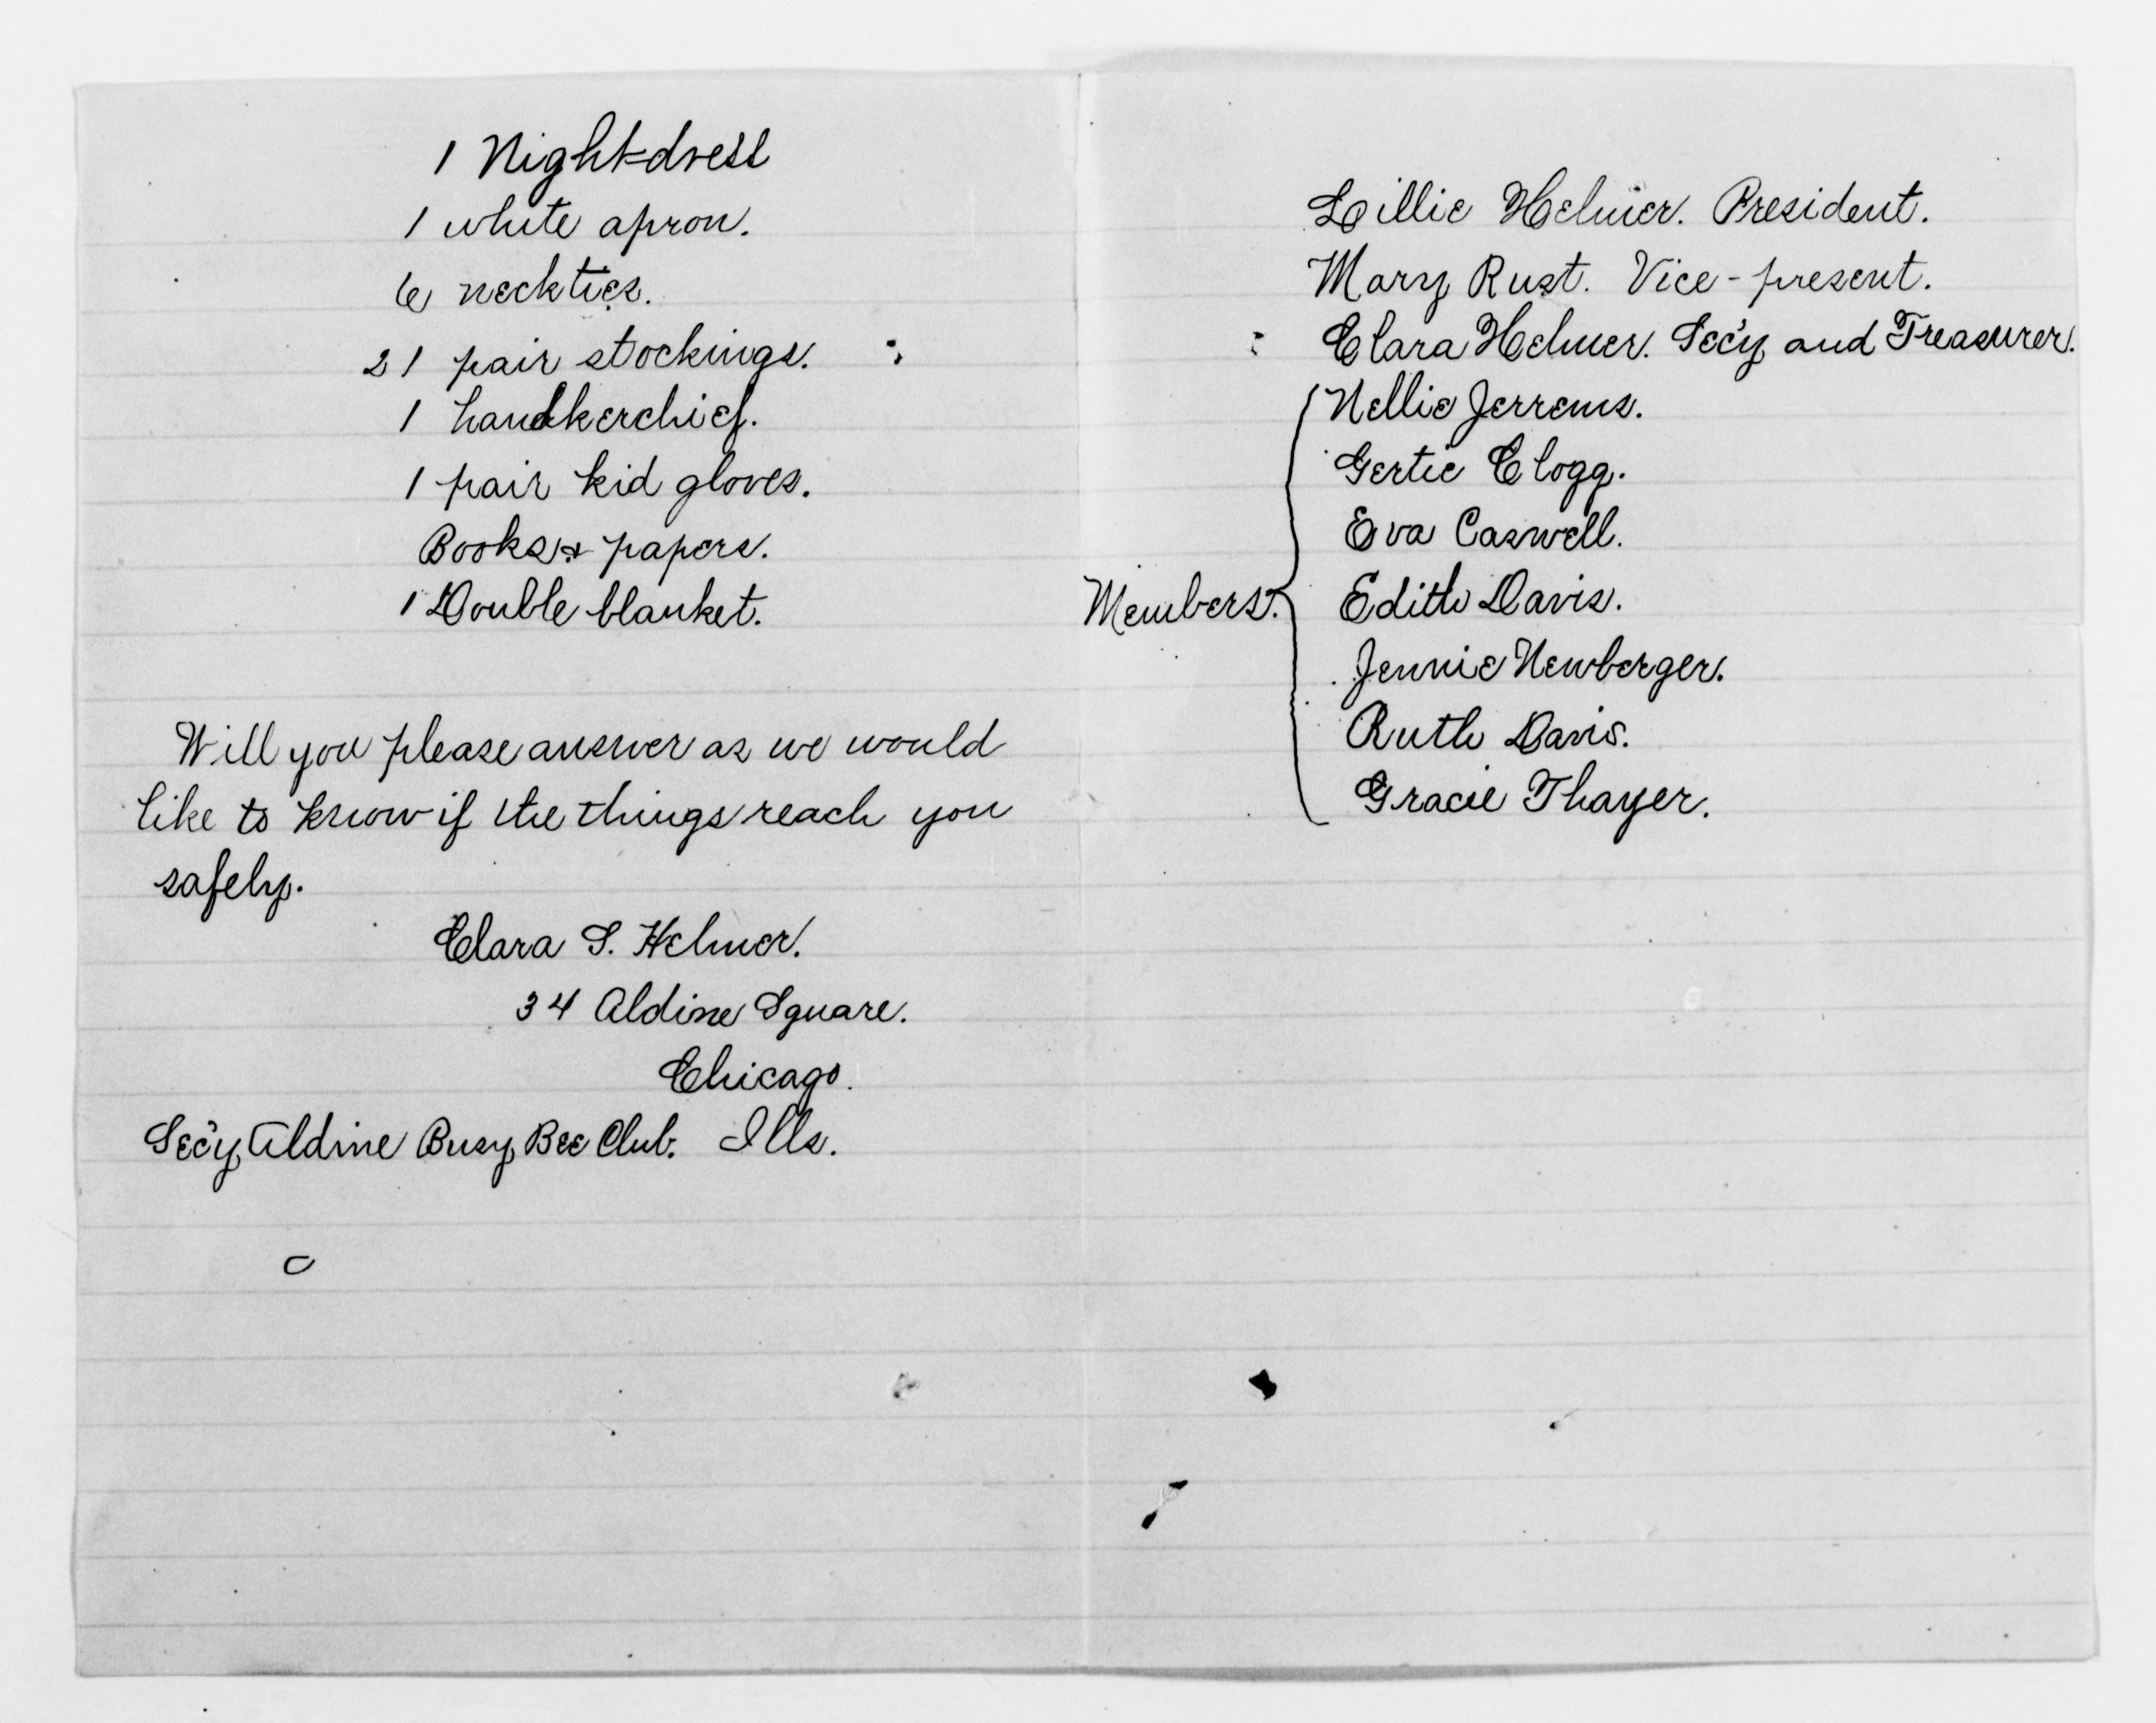 1 Night-dress
1 white apron.
6 neckties.
21 pair stockings.
1 handkerchief.
1 pair kid gloves.
Books & papers.
1 Double blanket.
Will you please answer as we would
like to know if the things reach you
safely.
Clara S. Helmer.
34 Aldine Square.
Chicago.
Sec'y, Aldine Busy Bee Club. Ills.
Lillie Helmer. President.
Mary Rust. Vice-present.
Clara Helmer. Sec'y and Treasurer.
Nellie Jerrems.
Gertie Clogg.
Eva Caswell.
Members. Edith Davis.
Jennie Newberger.
Ruth Davis.
Gracie Thayer.